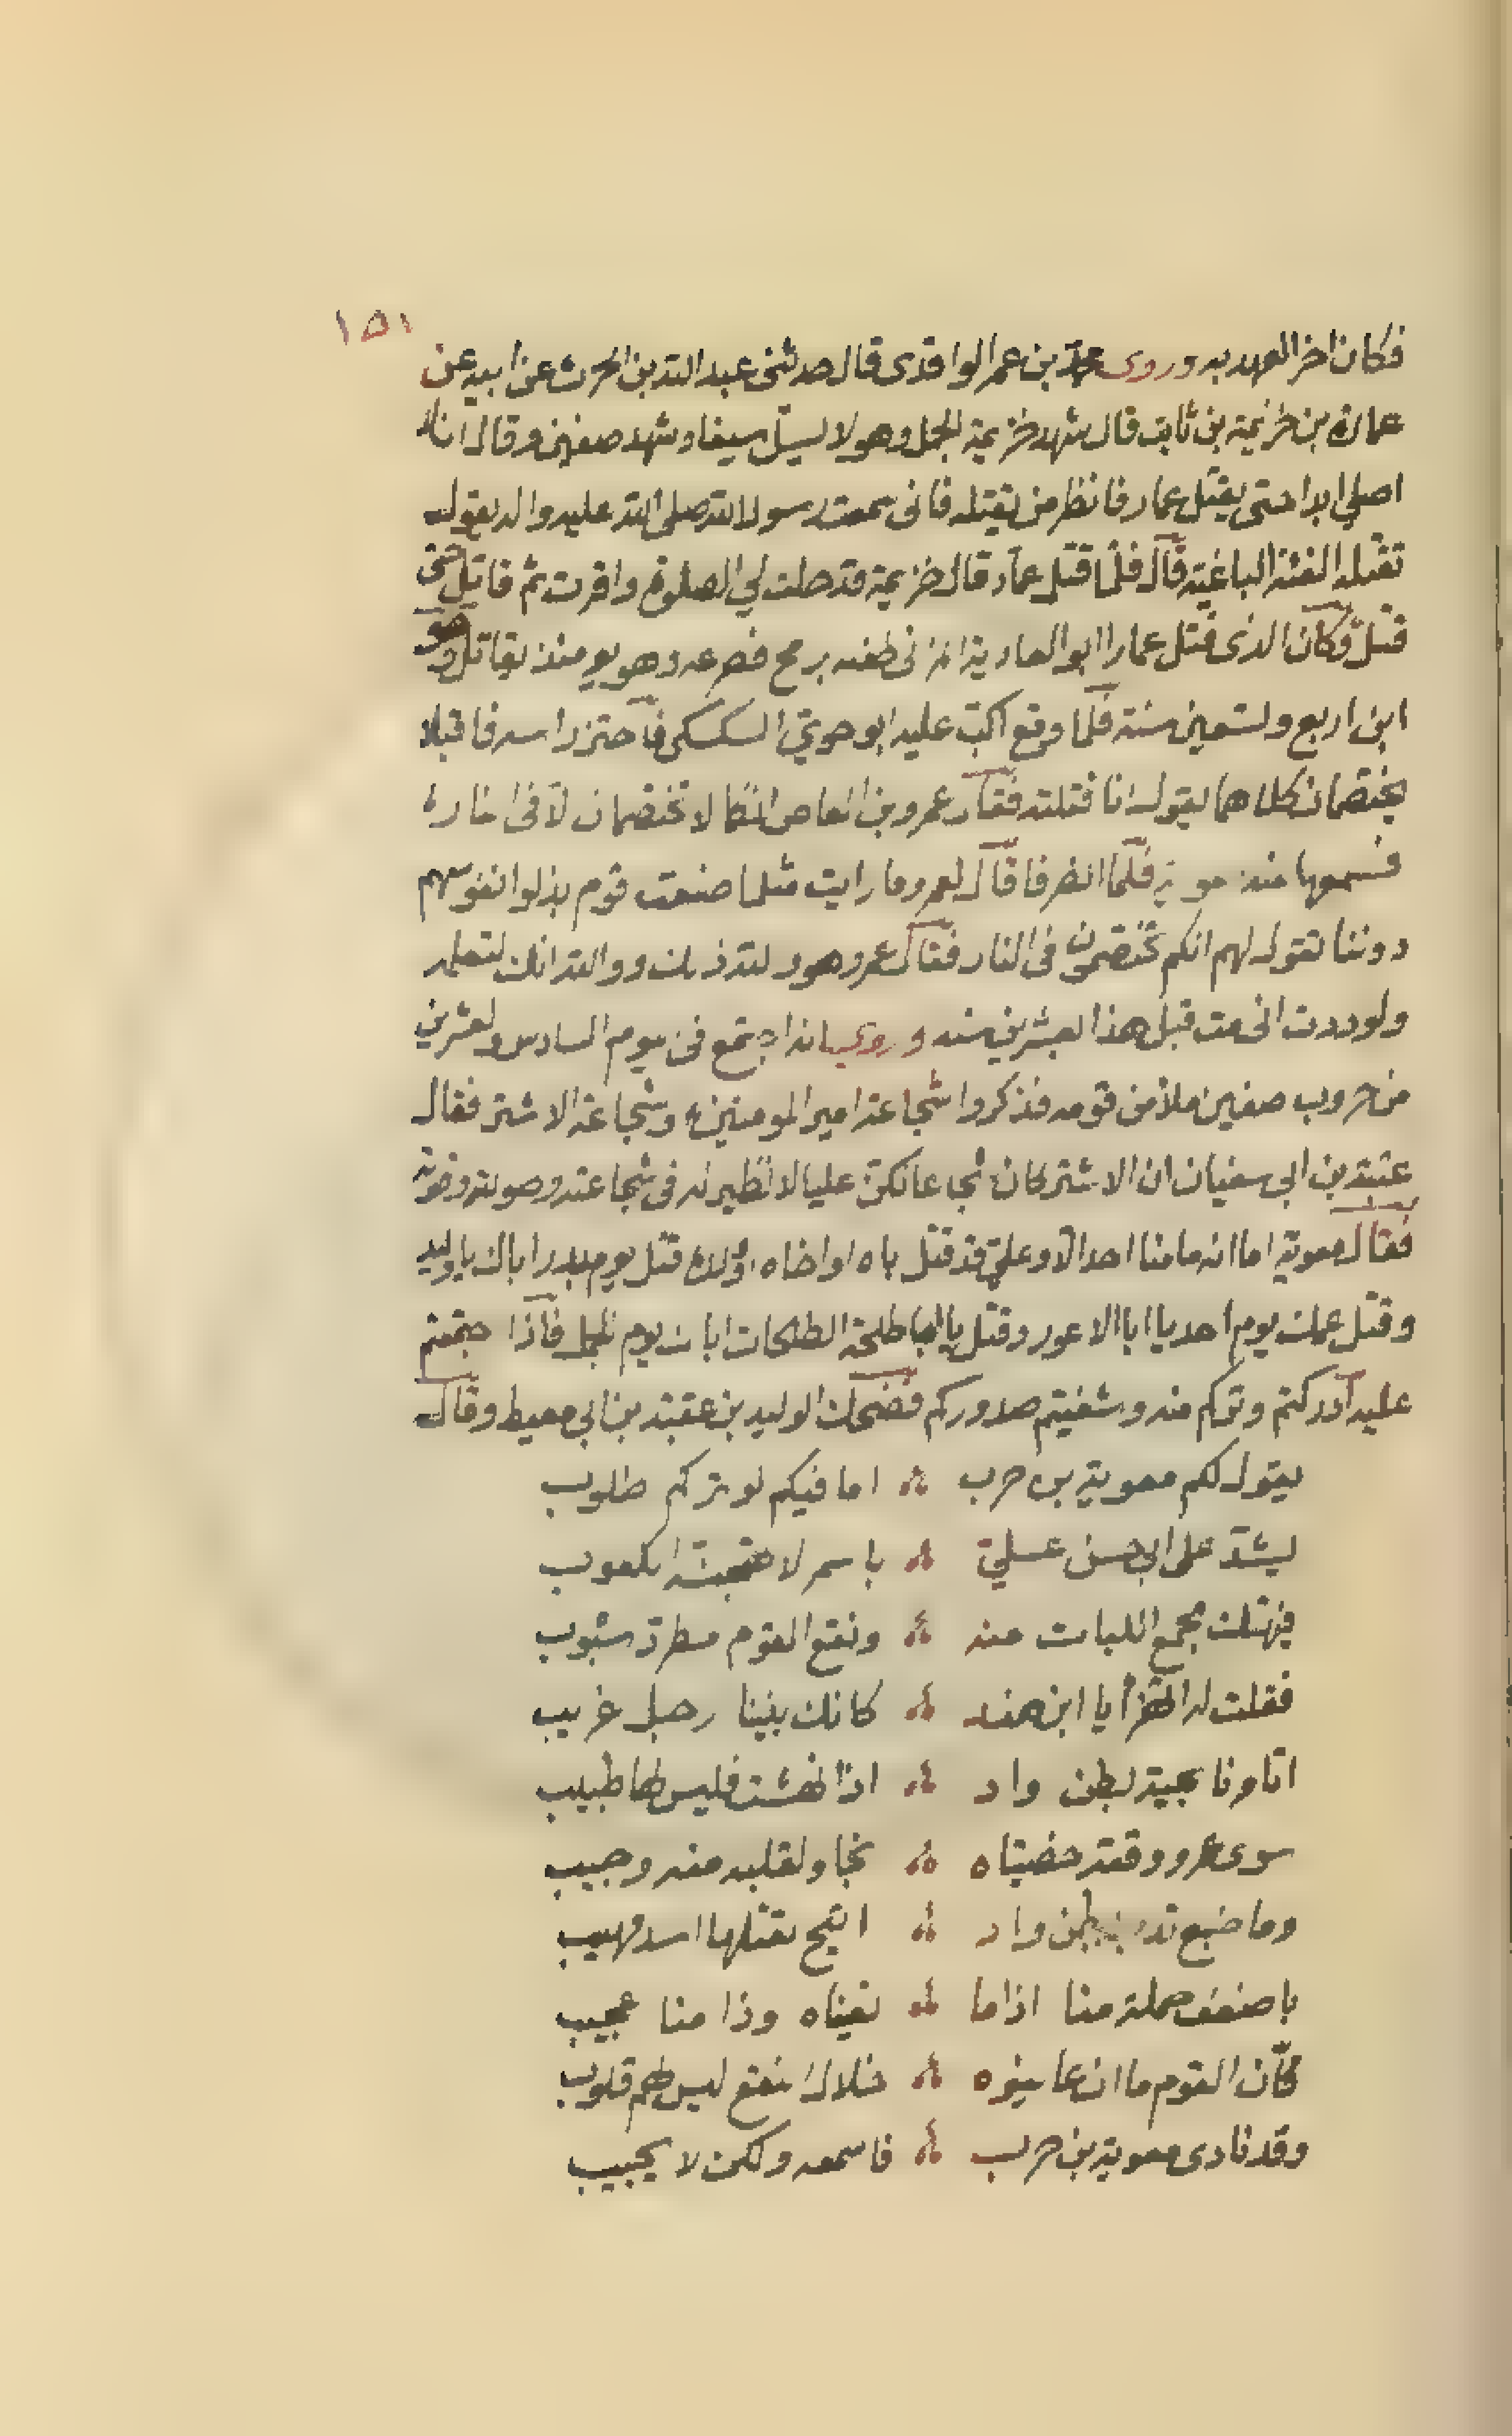 ١٥١
فكان اخر العهد به وروى محمد بن عمر الواقدى قال حدثنى عبد الله بن الحرث عن ابيه عن
عمارة بن خزيمة بن ثابت قال شهد خزيمة الجمل وهو لا يسل سيفا وشهد صفين وقال انا لا
اصلي ابدا حتى يقتل عمار فانظر من يقتله فانى سمعت رسول الله صلى الله عليه واله يقول
تقتله الفئة الباغية قال فلما قتل عمار قال خزيمة قد حلت لي الصلوة واقربت ثم قاتل حتى
قتل وكان الذى قتل عمارا ابو العادية المزنى طعنه برمح فصرعه وهو يومئذ يقاتل وهو
ابن اربع وتسعين سنة فلما وقع اكب عليه ابو حوي السكسكى فاحتز راسه فاقبلا
يختصمان كلاهما يقول انا قتلته فقال عمرو بن العاص انكما لا تختصمان الا فى النار
فسمعها منه معوية فلما انصرفا قال لعمرو ما رايت مثلما صنعت قوم بذلوا نفوسهم
دوننا تقول لهم انكم تختصمون فى النار فقال عمرو هو والله ذلك ووالله انك لتعلمه
ولوددت انى مت قبل هذا بعشرين سنه وروى انه اجتمع فى يوم السادس والعشرين
من حروب صفين ملأ من قومه فذكروا شجاعة امير المومنين وشجاعة الاشتر فقال
عتبة بن ابى سفيان ان الاشتر كان شجاعا لكن عليا لا نظير له فى شجاعته وصولته وقوته
فقال معوية اما انه ما منا احد الا وعلي قد قتل اباه او اخاه او ولده قتل يوم بدر اباك يا وليد
وقتل عمك يوم احد يا ابا الاعور وقتل يا ابن طلحة الطلحات اباك يوم الجمل فاذا اجتمعتم
عليه ادركتم وتركم منه وشفيتم صدوركم فضحك الوليد بن عقبة بن ابى معيط وقال
يقول لكم معوية بن حرب ۞ اما فيكم لوتركم طلوب
يشد على ابى حسن علي ۞ باسمر لا تهجنه الكعوب
فيهتك مجمع اللبات منه ۞ ونقع القوم مطرد يثوب
فقلت له اتهزأ يا ابن هند ۞ كانك بيننا رجل غريب
اتامرنا بحية بطن واد ۞ اذا نهشت فليس لها طبيب
سوى عمرو وقته خصيتاه ۞ نجا ولقلبه منه وجيب
وما ضبع تدب ببطن واد ۞ اتيح لقتلها اسد مهيب
باضعف حيلة منا اذا ما ۞ لقيناه وذا منا عجيب
كأن القوم لما ان عاينوه ۞ خلال النقع ليس لهم قلوب
وقد نادى معوية بن حرب ۞ فاسمعه ولكن لا يجيب